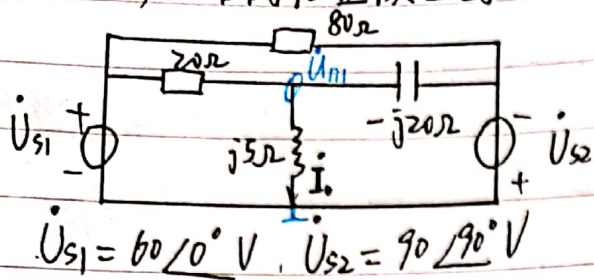 80Ω
20Ω
U̇n1
-j20Ω
+
-
U̇S1
j5Ω
İ.
-
+
U̇S2
U̇S1 = 60∠0° V, U̇S2 = 90∠90° V